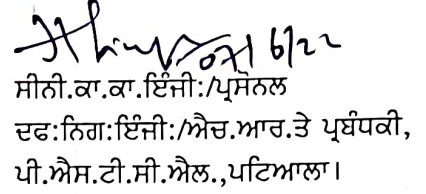 07/6/22
ਸੀਨੀ.ਕਾ.ਕਾ.ਇੰਜੀ:/ਪ੍ਰਸੋਨਲ
ਦਫ:ਨਿਗ:ਇੰਜੀ:/ਐਚ.ਆਰ.ਤੇ ਪ੍ਰਬੰਧਕੀ,
ਪੀ.ਐਸ.ਟੀ.ਸੀ.ਐਲ.,ਪਟਿਆਲਾ।